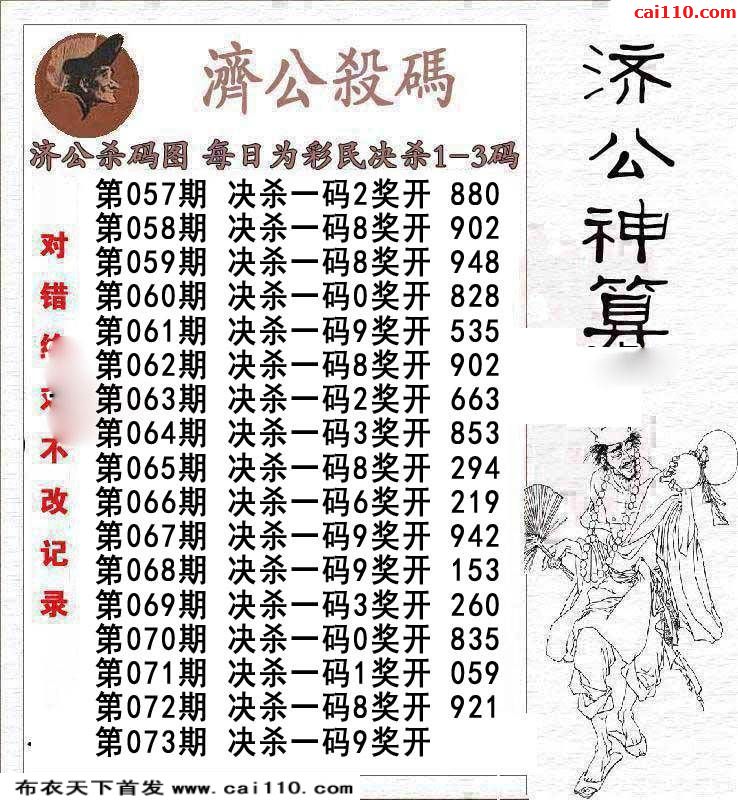 cai110.com
濟公殺碼
济公杀码图 每日为彩民决杀1-3码
第057期 决杀一码2奖开 880
第058期 决杀一码8奖开 902
第059期 决杀一码8奖开 948
第060期 决杀一码0奖开 828
第061期 决杀一码9奖开 535
第062期 决杀一码8奖开 902
第063期 决杀一码2奖开 663
第064期 决杀一码3奖开 853
第065期 决杀一码8奖开 294
第066期 决杀一码6奖开 219
第067期 决杀一码9奖开 942
第068期 决杀一码9奖开 153
第069期 决杀一码3奖开 260
第070期 决杀一码0奖开 835
第071期 决杀一码1奖开 059
第072期 决杀一码8奖开 921
第073期 决杀一码9奖开
对错
不改记录
济公神算
布衣天下首发 www.cai110.com